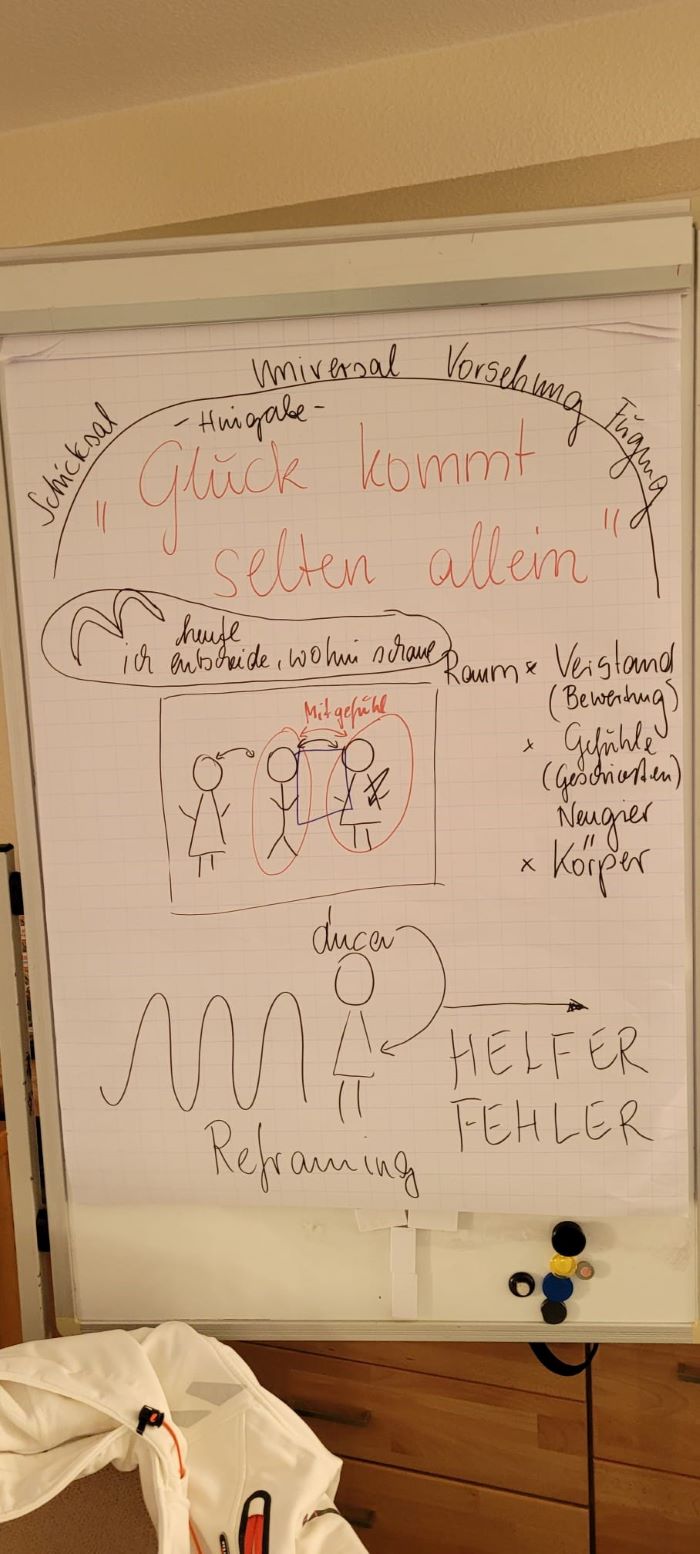 Universal Vorsehung
Schicksal
Fügung
- Hingabe -
"Glück kommt
selten allein"
heute
ich entscheide, wohin schaue
Raum x Verstand
(Bewertung)
x Gefühle
Neugier
x Körper
Mitgefühl
HELFER
FEHLER
Reframing